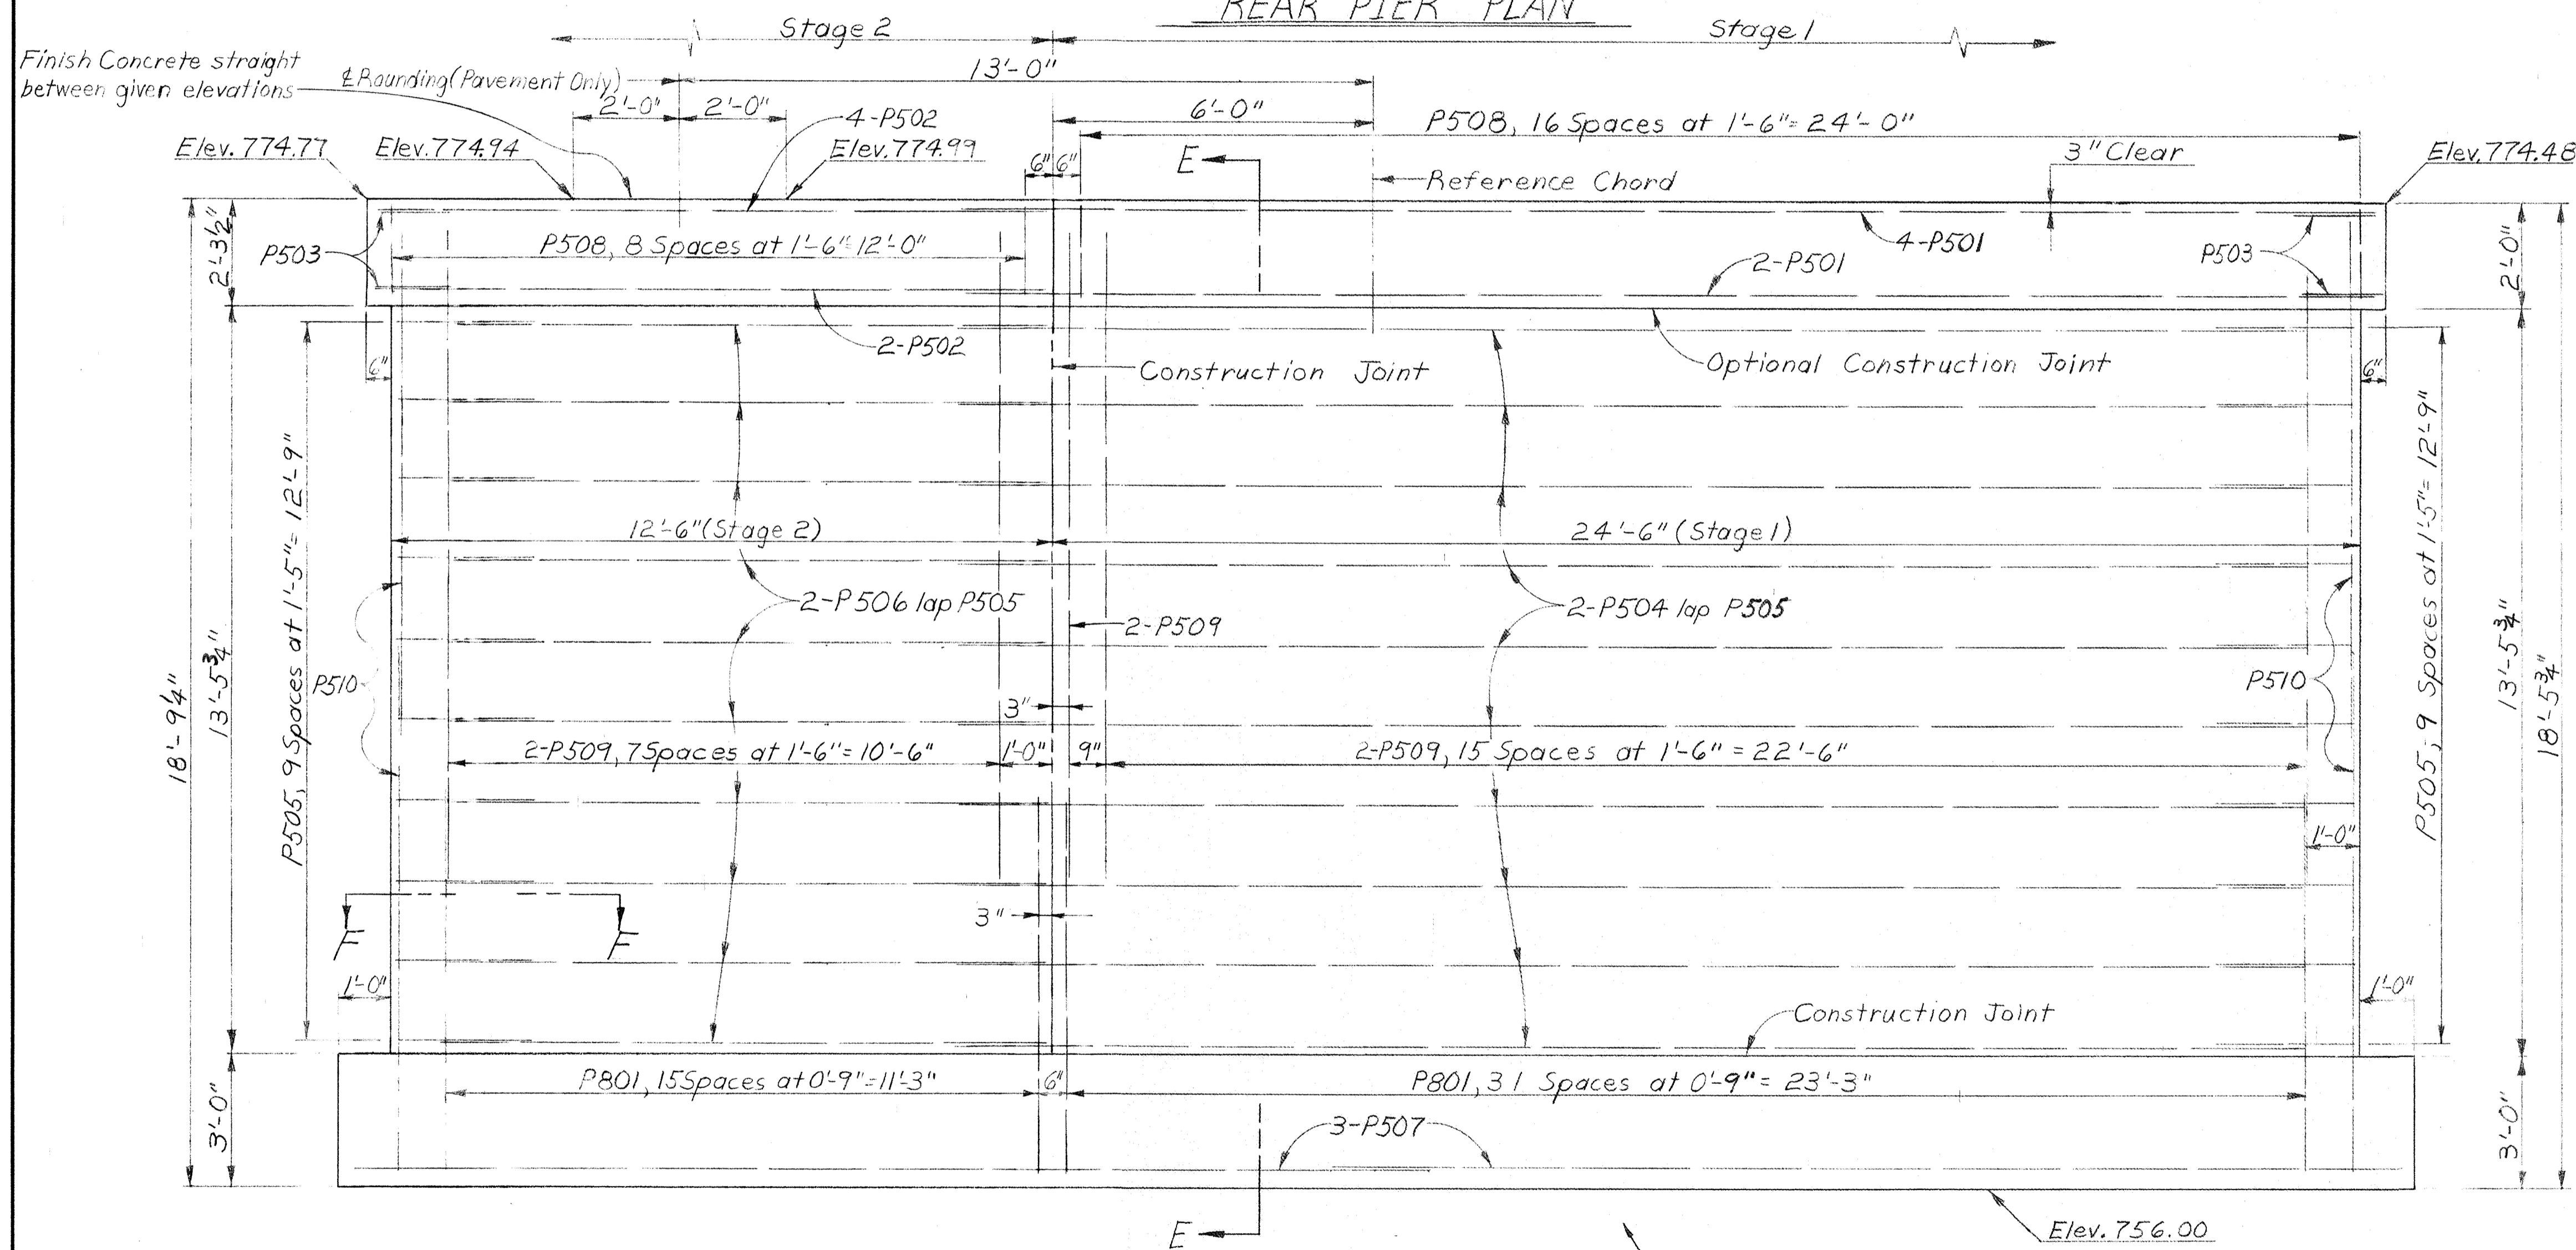 REAR PIER PLAN
Stage 2
Stage 1
Finish Concrete straight
between given elevations
℄ Rounding (Pavement Only)
13'-0"
2'-0"
2'-0"
4-P502
6'-0"
P508, 16 Spaces at 1'-6"= 24'-0"
Elev. 774.77
Elev. 774.94
Elev. 774.99
6"
6"
E
3" Clear
Elev. 774.48
Reference Chord
2'-3½"
P503
P508, 8 Spaces at 1'-6"=12'-0"
4-P501
2-P501
P503
2'-0"
2-P502
Construction Joint
Optional Construction Joint
6"
6"
18'-9¼"
13'-5¾"
P505, 9 Spaces at 1'-5"= 12'-9"
12'-6" (Stage 2)
24'-6" (Stage 1)
P505, 9 Spaces at 1'-5"= 12'-9"
13'-5¾"
18'-5¾"
2-P506 lap P505
2-P509
2-P504 lap P505
P510
P510
3"
2-P509, 7 Spaces at 1'-6"= 10'-6"
1'-0"
9"
2-P509, 15 Spaces at 1'-6" = 22'-6"
1'-0"
3"
F
F
1'-0"
1'-0"
Construction Joint
3'-0"
P801, 15 Spaces at 0'-9"=11'-3"
6"
P801, 31 Spaces at 0'-9"= 23'-3"
3'-0"
3-P507
E
Elev. 756.00